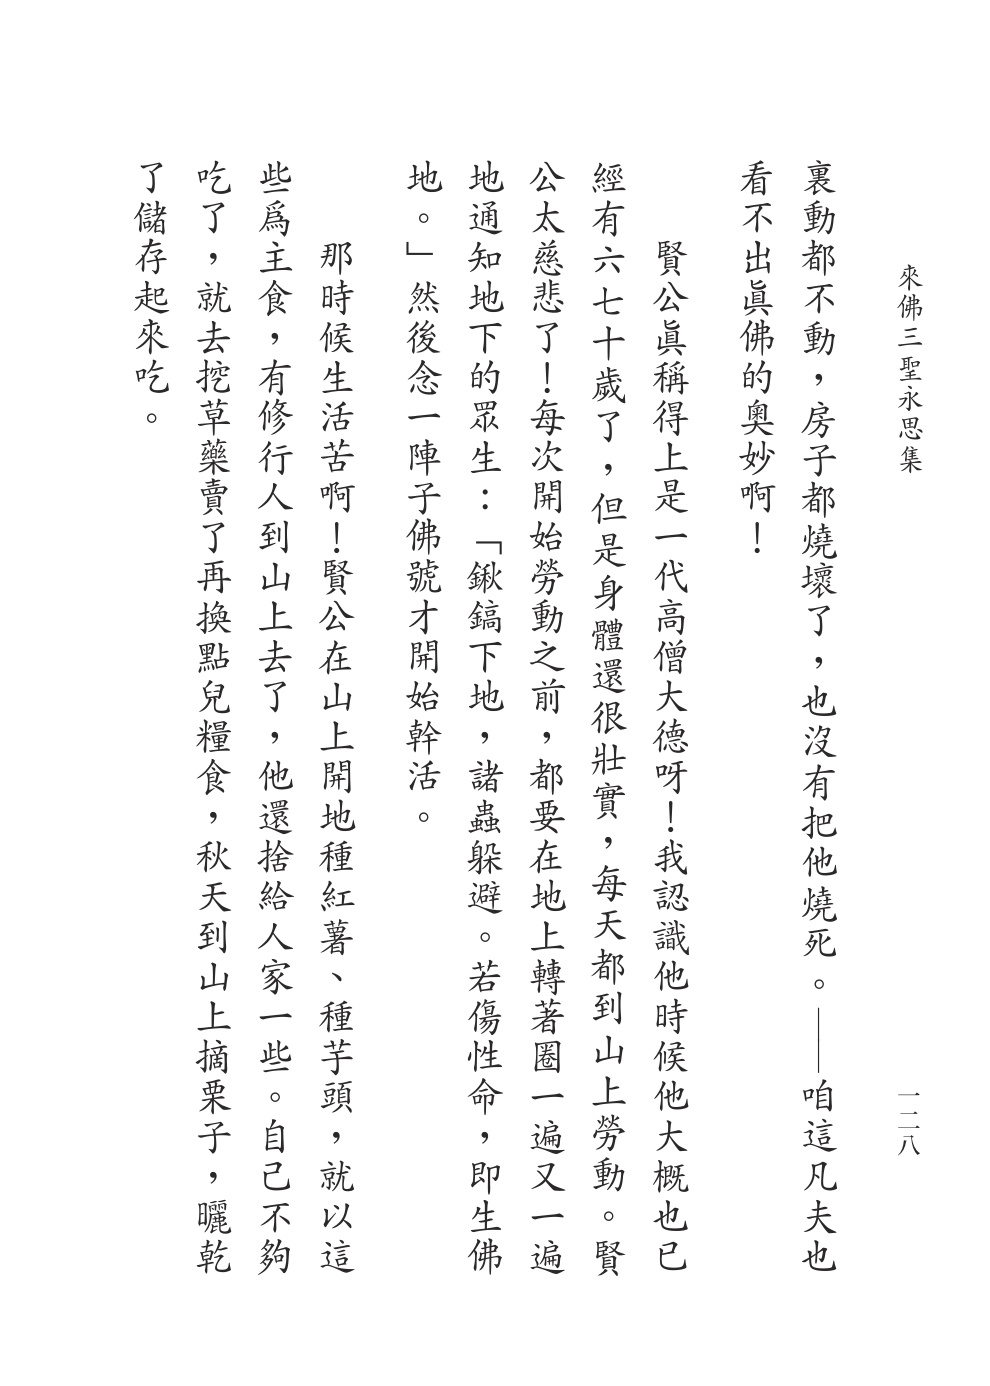 來佛三聖永思集
一二八
裏動都不動，房子都燒壞了，也沒有把他燒死。——咱這凡夫也
看不出眞佛的奧妙啊！
賢公眞稱得上是一代高僧大德呀！我認識他時候他大概也已
經有六七十歲了，但是身體還很壯實，每天都到山上勞動。賢
公太慈悲了！每次開始勞動之前，都要在地上轉著圈一遍又一遍
地通知地下的眾生：「鍬鎬下地，諸蟲躲避。若傷性命，即生佛
地。」然後念一陣子佛號才開始幹活。
那時候生活苦啊！賢公在山上開地種紅薯、種芋頭，就以這
些爲主食，有修行人到山上去了，他還捨給人家一些。自己不夠
吃了，就去挖草藥賣了再換點兒糧食，秋天到山上摘栗子，曬乾
了儲存起來吃。